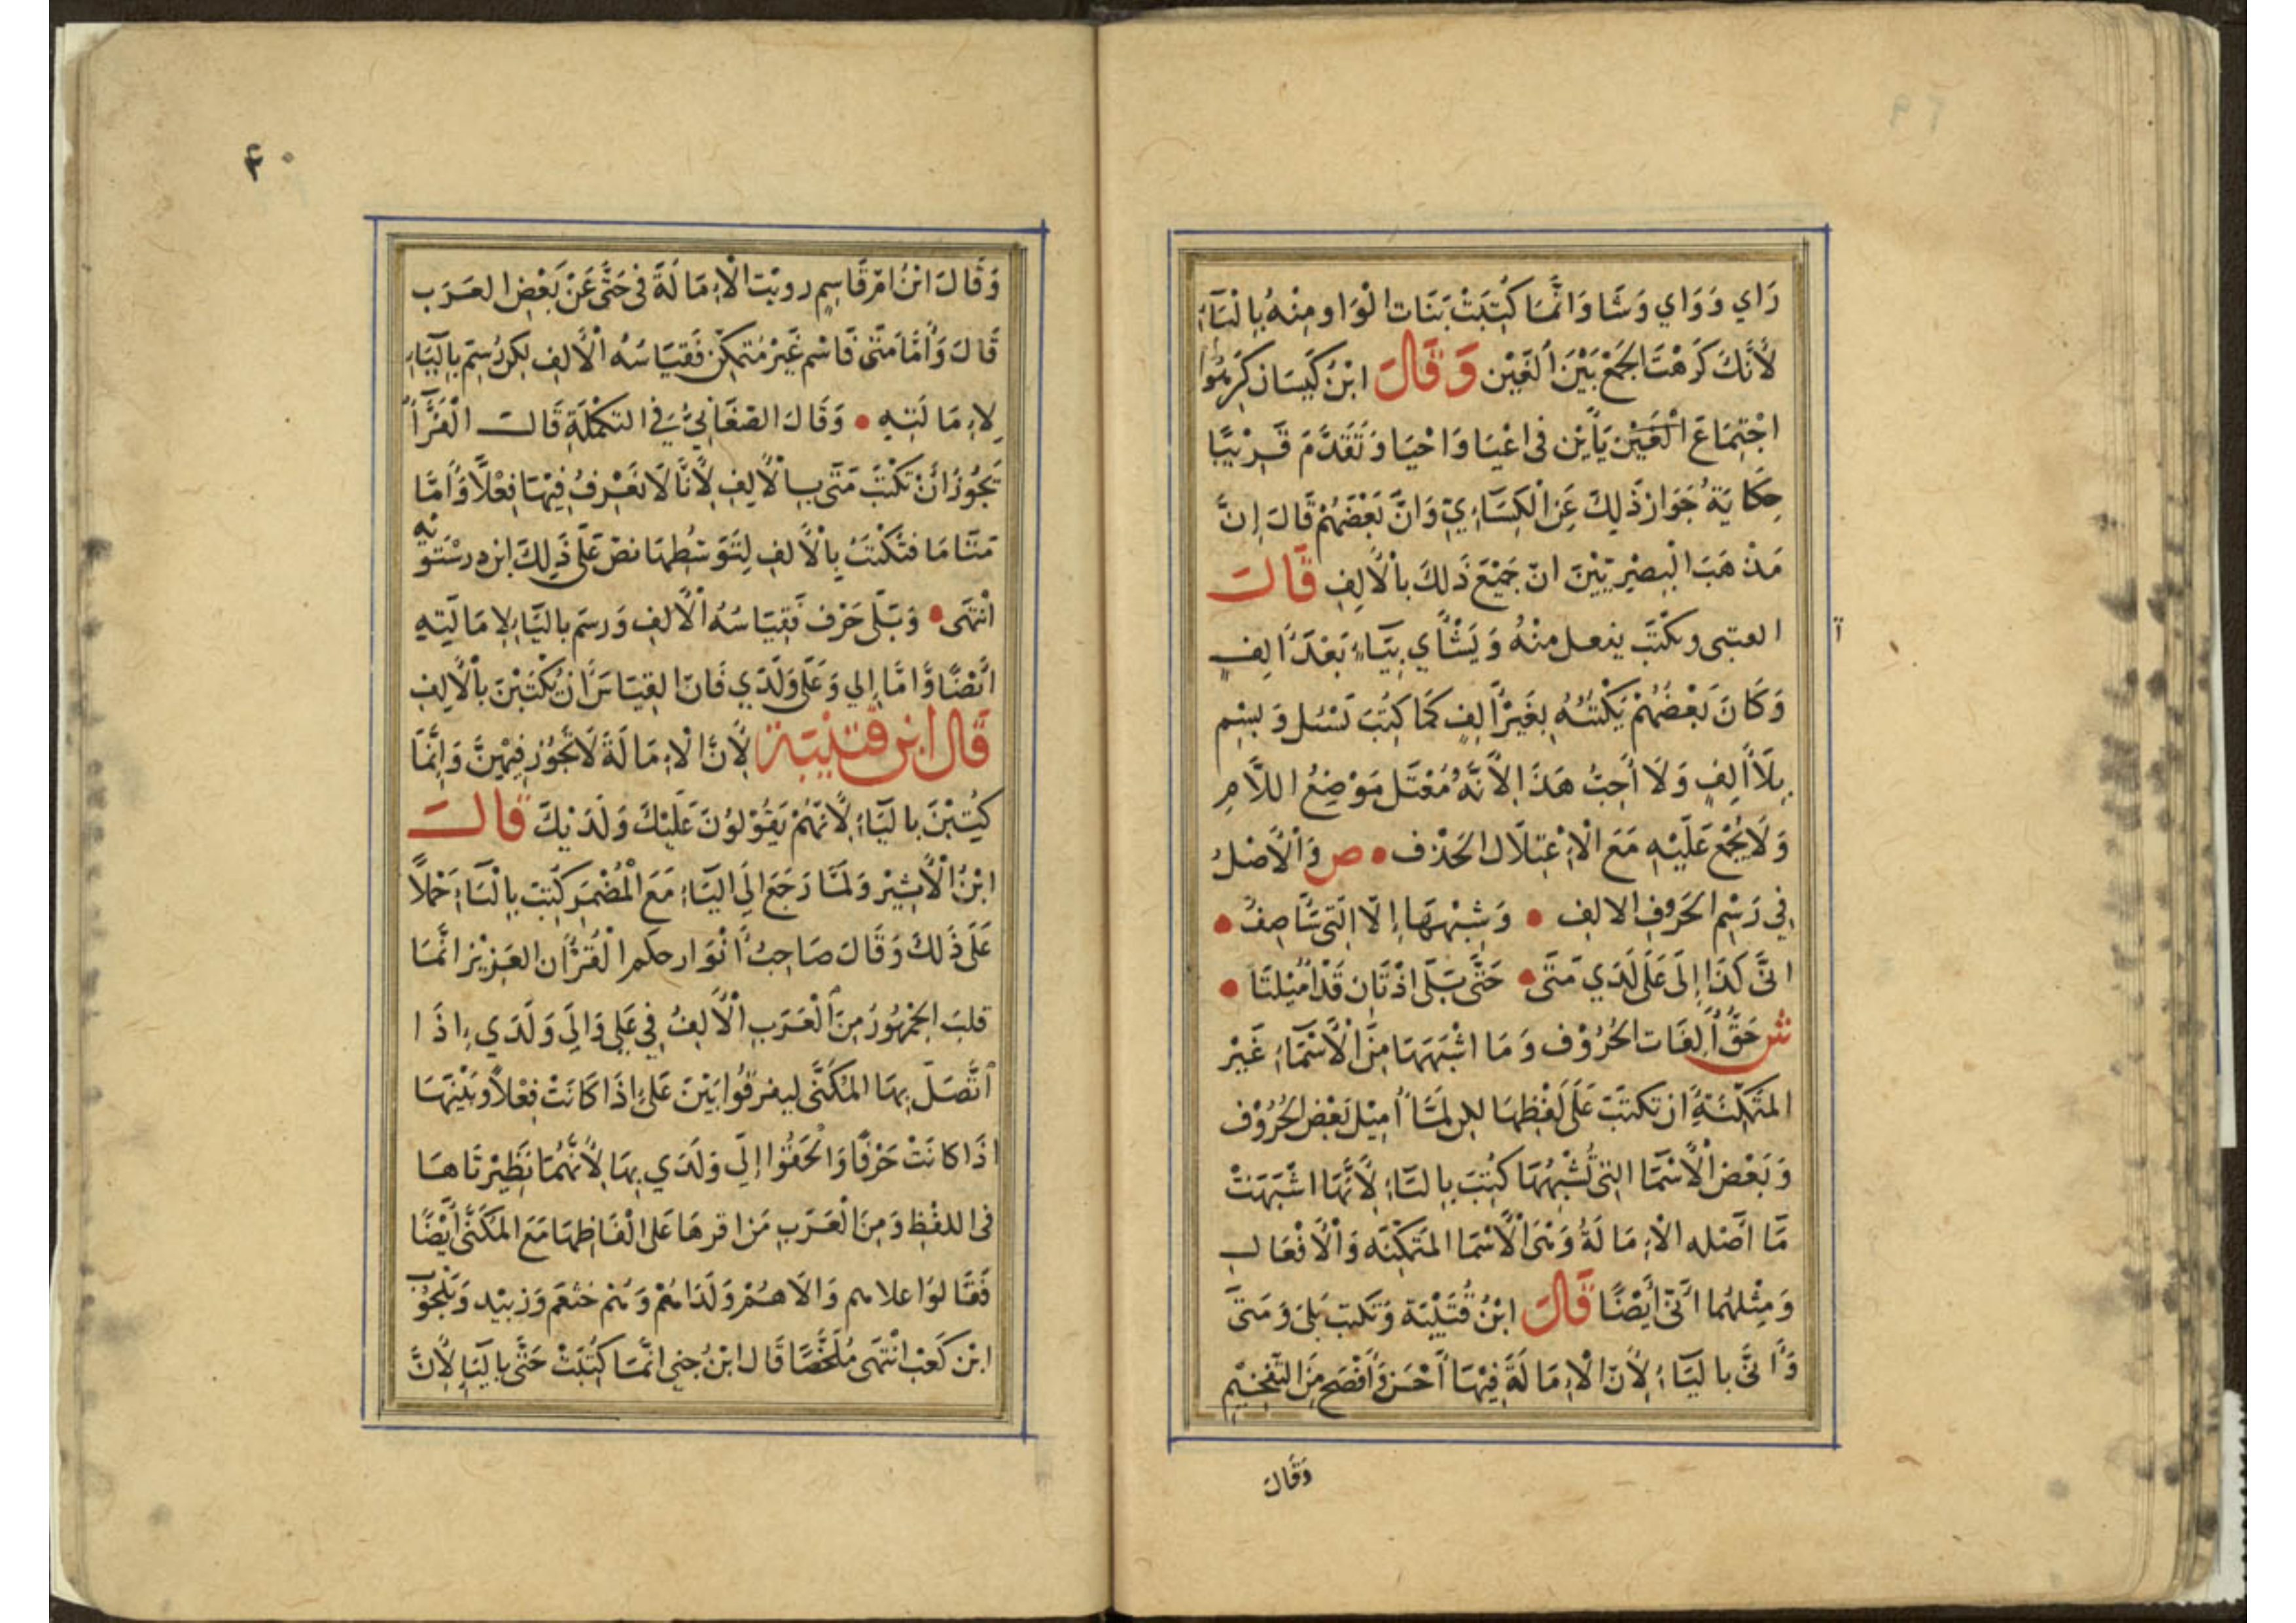 رَاي وَوَاي وَشَا وَانَّمَا كُتِبَتْ بَنَات الْوَاو مِنْهُ بِالْيَاءِ
لأَنَّكَ كَرَهْتَ الجَمْعَ بَيْنَ أَلِفَيْن وَقَالَ ابْنُ كَيْسَان كَرِهُوا
اجْتِمَاعَ أَلِفَيْن يَأيْن فى اعْيَا وَاحْيَا وَتَقَدَّمَ قَرِيْبًا
حِكَايَةُ جَوَاز ذَلِكَ عَنِ الْكِسَاءِيِّ وَانَّ بَعْضَهُمْ قَالَ إِنَّ
مَذْهَبَ الْبِصْرِيِّيْنَ انّ جَمِيْعَ ذَلِكَ بِالْأَلِفِ قَالَ
العتبى ويكْتَب يفعل مِنْهُ وَيَشْأَي بِيَاءٍ بَعْدَ أَلِفٍ
وَكَانَ بَعْضُهُمْ يَكْتُبُهُ بِغَيْرِ أَلِفٍ كَمَا كِتُبَ تَسْئل وَيسْم
بِلَا أَلِفٍ وَلَا أُحِبُّ هَذَا لِأَنَّهُ مُعْتَل مَوْضِعُ اللَّامِ
وَلَا يُجْمَع عَلَيْهِ مَعَ الْاِعْتِلَال الحَذْف • ص وَالْأَصْلُ
فِي رَسْمِ الحَرُوفِ الالِف • وَشِبْهِهَا إِلَّا الَّتِى سَأَصِفُ •
انَّى كَذَا إِلَى عَلَى لَدَي مَتَى • حَتَّى بَلَى اذْ تَان قَدْ أُمِيْلَتَا •
ش حَقُّ أَلِفَات الحُرُوْف وَمَا اشْبَهَهَا مِنَ الْأَسْمَاءِ غَيْر
المتَمَكِّنَةِ أَن تكتَبَ عَلَى لَفْظِهَا لكن لَمَّا أُمِيْلَ بَعْض الحُرُوْف
وَبَعْض الْأَسْمَا التِى تُشْبِهُهَا كُتِبَ بِاليَاءِ لِأَنَّهَا اشْبَهَتْ
مَا أَصْله الْاِمَالَةُ وَهْىَ الْأَسْمَا المتَمَكِّنَه وَالْأَفْعَال
وَمِثْلهُمَا انَّى أَيْضًا قَالَ ابْنُ قُتَيْبَة وَتكتب بَلى وَمَتَى
وَأَنَّى بالْيَاءِ لِأَنَّ الْاِمَالَةَ فِيْهَا أَحْسَن وَأَفْصَح مِنَ التَّفْخِيْمِ
وَقَالَ
۴۰
وَقَالَ ابْنُ امّ قَاسِمٍ رويْت الْاِمَالَةَ فى حَتَّى عَنْ بَعْضِ العَرَب
قَالَ وَأَمَّا مَتَى فَاسْم غَيْر مُتمَكِّن فَقِيَاسُهُ الْأَلِف لكِن رُسِمَ بِالْيَاءِ
لِاِمَالَتِهِ • وَقَالَ الصّغَانِيُّ فى التكْمِلَةِ قَالَ الْفَرَّاُ
يَجُوْزُ أَنْ تَكْتُبَ مَتَى بِالْأَلِفِ لِأَنَّا لَا نَعْرِفُ فِيْهَا فِعْلًا وَأَمَّا
مَتَامَا فتكْتَبُ بِالْأَلِفِ لِتَوَسُّطِهَا نصّ عَلَى ذَلِكَ ابن درسْتَوَيْه
انْتَهَى • وَبَلَى حَرْف فَقِيَاسُهُ الْأَلِف وَرسَم بالْيَاءِ لِاِمَالَتِهِ
ايْضًا وَأمَّا إِلى وَعَلَى وَلَدَي فَانّ القِيَاسَ أَن يُكْتَبْنَ بِالْأَلِفِ
قَالَ ابْن قتَيْبَة لِأَنَّ الْاِمَالَةَ لَا تَجُوْز فِيْهِنَّ وَإِنَّمَا
كُتِبْنَ بِالْيَاءِ لِأَنَّهُمْ يَقُوْلُوْنَ عَلَيْكَ وَلَدَيْكَ قَالَ
ابْنُ الْأَثِيْر وَلَمَّا رَجَعَ الَى الْيَاءِ مَعَ الْمُضْمَر كُتِبَ بِالْيَاءِ حَمْلًا
عَلَى ذَلكَ وَقَالَ صَاحِبُ أَنْوَار حكم الْقُرْأَن العَزِيْز انَّمَا
قلبَ الجُمْهُوْرُ مِنَ الْعَرَبِ الْأَلِفُ فِي عَلى وَإِلَى وَلَدَي إِذَا
اتَّصَلَ بِهَا المُكَنَّى ليفرقُوا بَيْنَ عَلَى إِذَا كَانَتْ فِعْلًا وَبَيْنَهَا
اذَا كَانَتْ حَرْفًا وَالحَقُوْا إِلَى وَلَدَي بِهَا لِأَنَّهُمَا نَظِيْرتَاهَا
فى اللفْظِ وَمِنَ الْعَرَبِ مَن اقرهَا عَلى الْفَاظِهَا مَعَ المكَنَّى أَيْضًا
فَقَالوَا علاهم وَالَاهُمْ وَلَدَاهُمْ وَهُمْ خَثْعَم وَزبيْد وَبَلْحَرْث
ابْن كَعْب انْتَهَى مُلَخَّصًا قَال ابْنُ جنِى انَّمَا كُتِبَتْ حَتَّى بِاليَاءِ لِأَنَّ